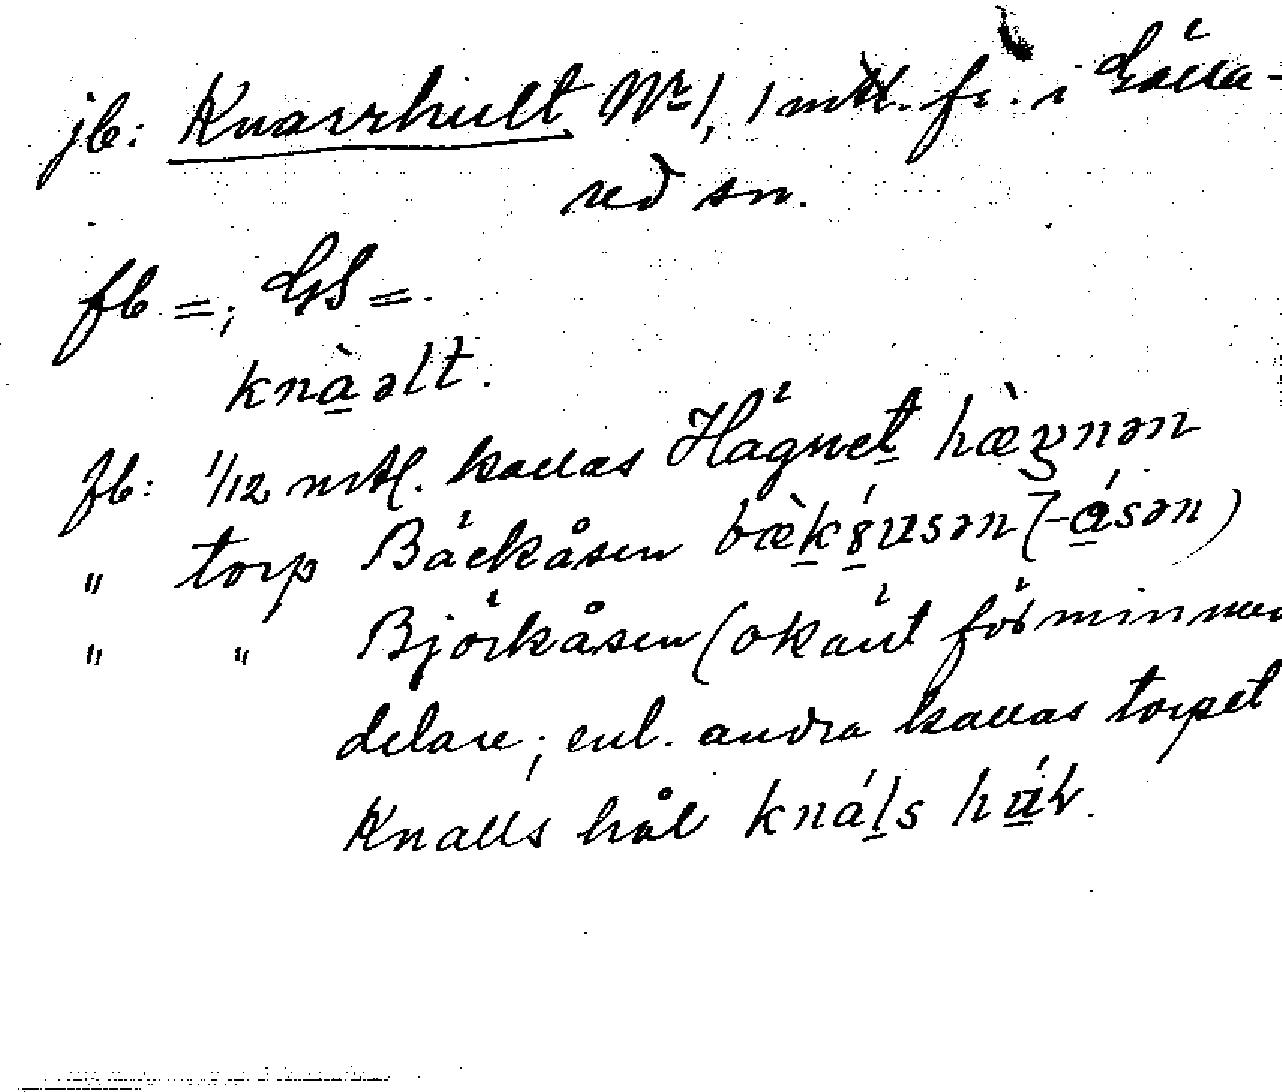 jb: Knarrhult Nr 1, 1 mtl. fr. i Gälla-
red sn.
fb =; GS =.
knàəlt.
fb: 1/12 mtl. kallas Hägnet hæ̀gnən
" torp Bäckåsen
" " Björkåsen (okänt för min med
delare; enl. andra kallas torpet
Knalls hål